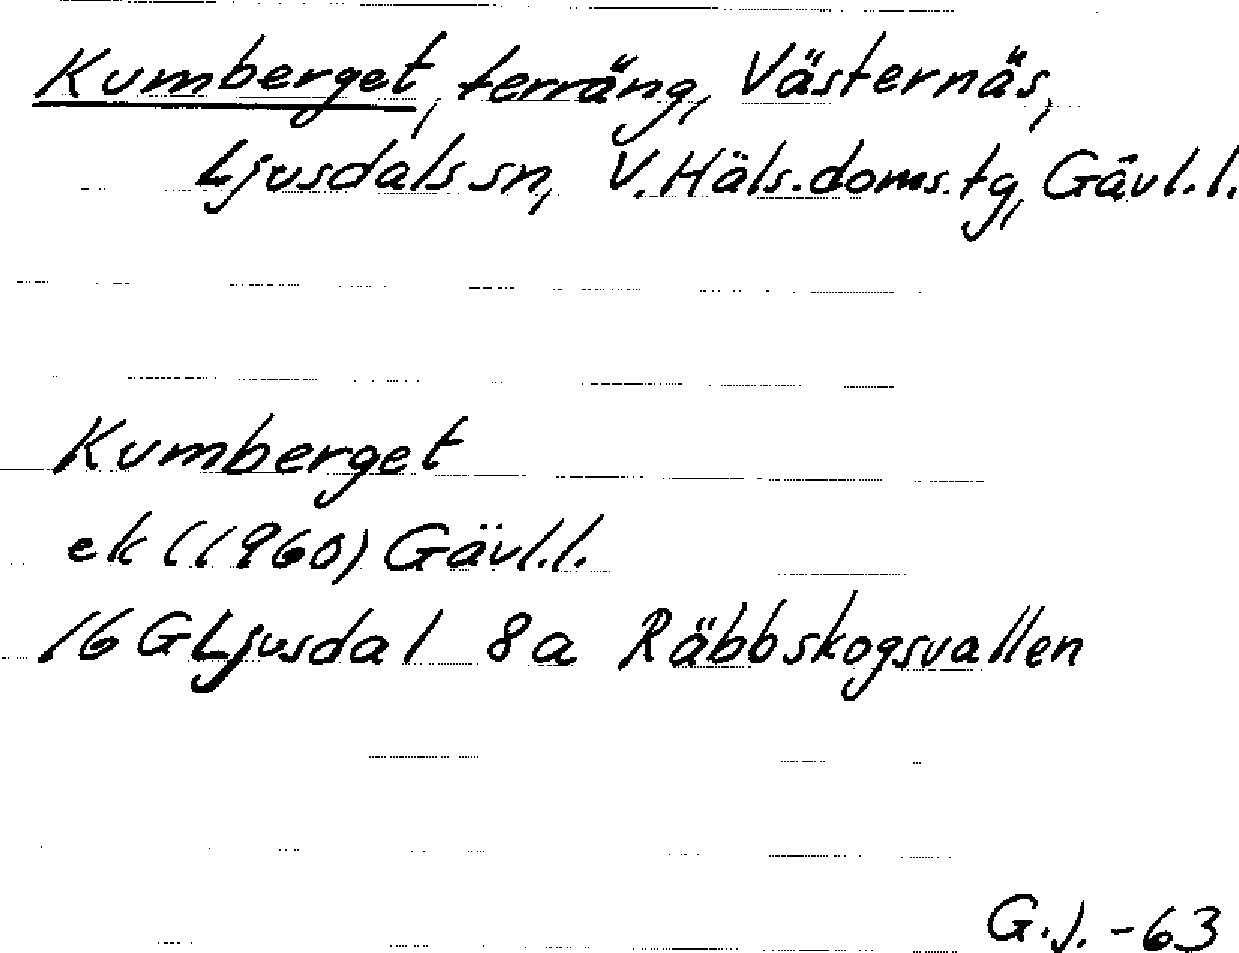 Kumberget, terräng, Västernäs,
Ljusdals sn, V. Häls. doms. tg, Gävl. l.
Kumberget
ek (1960) Gävl. l.
16 G Ljusdal 8a Räbbskogsvallen
G.J. -63